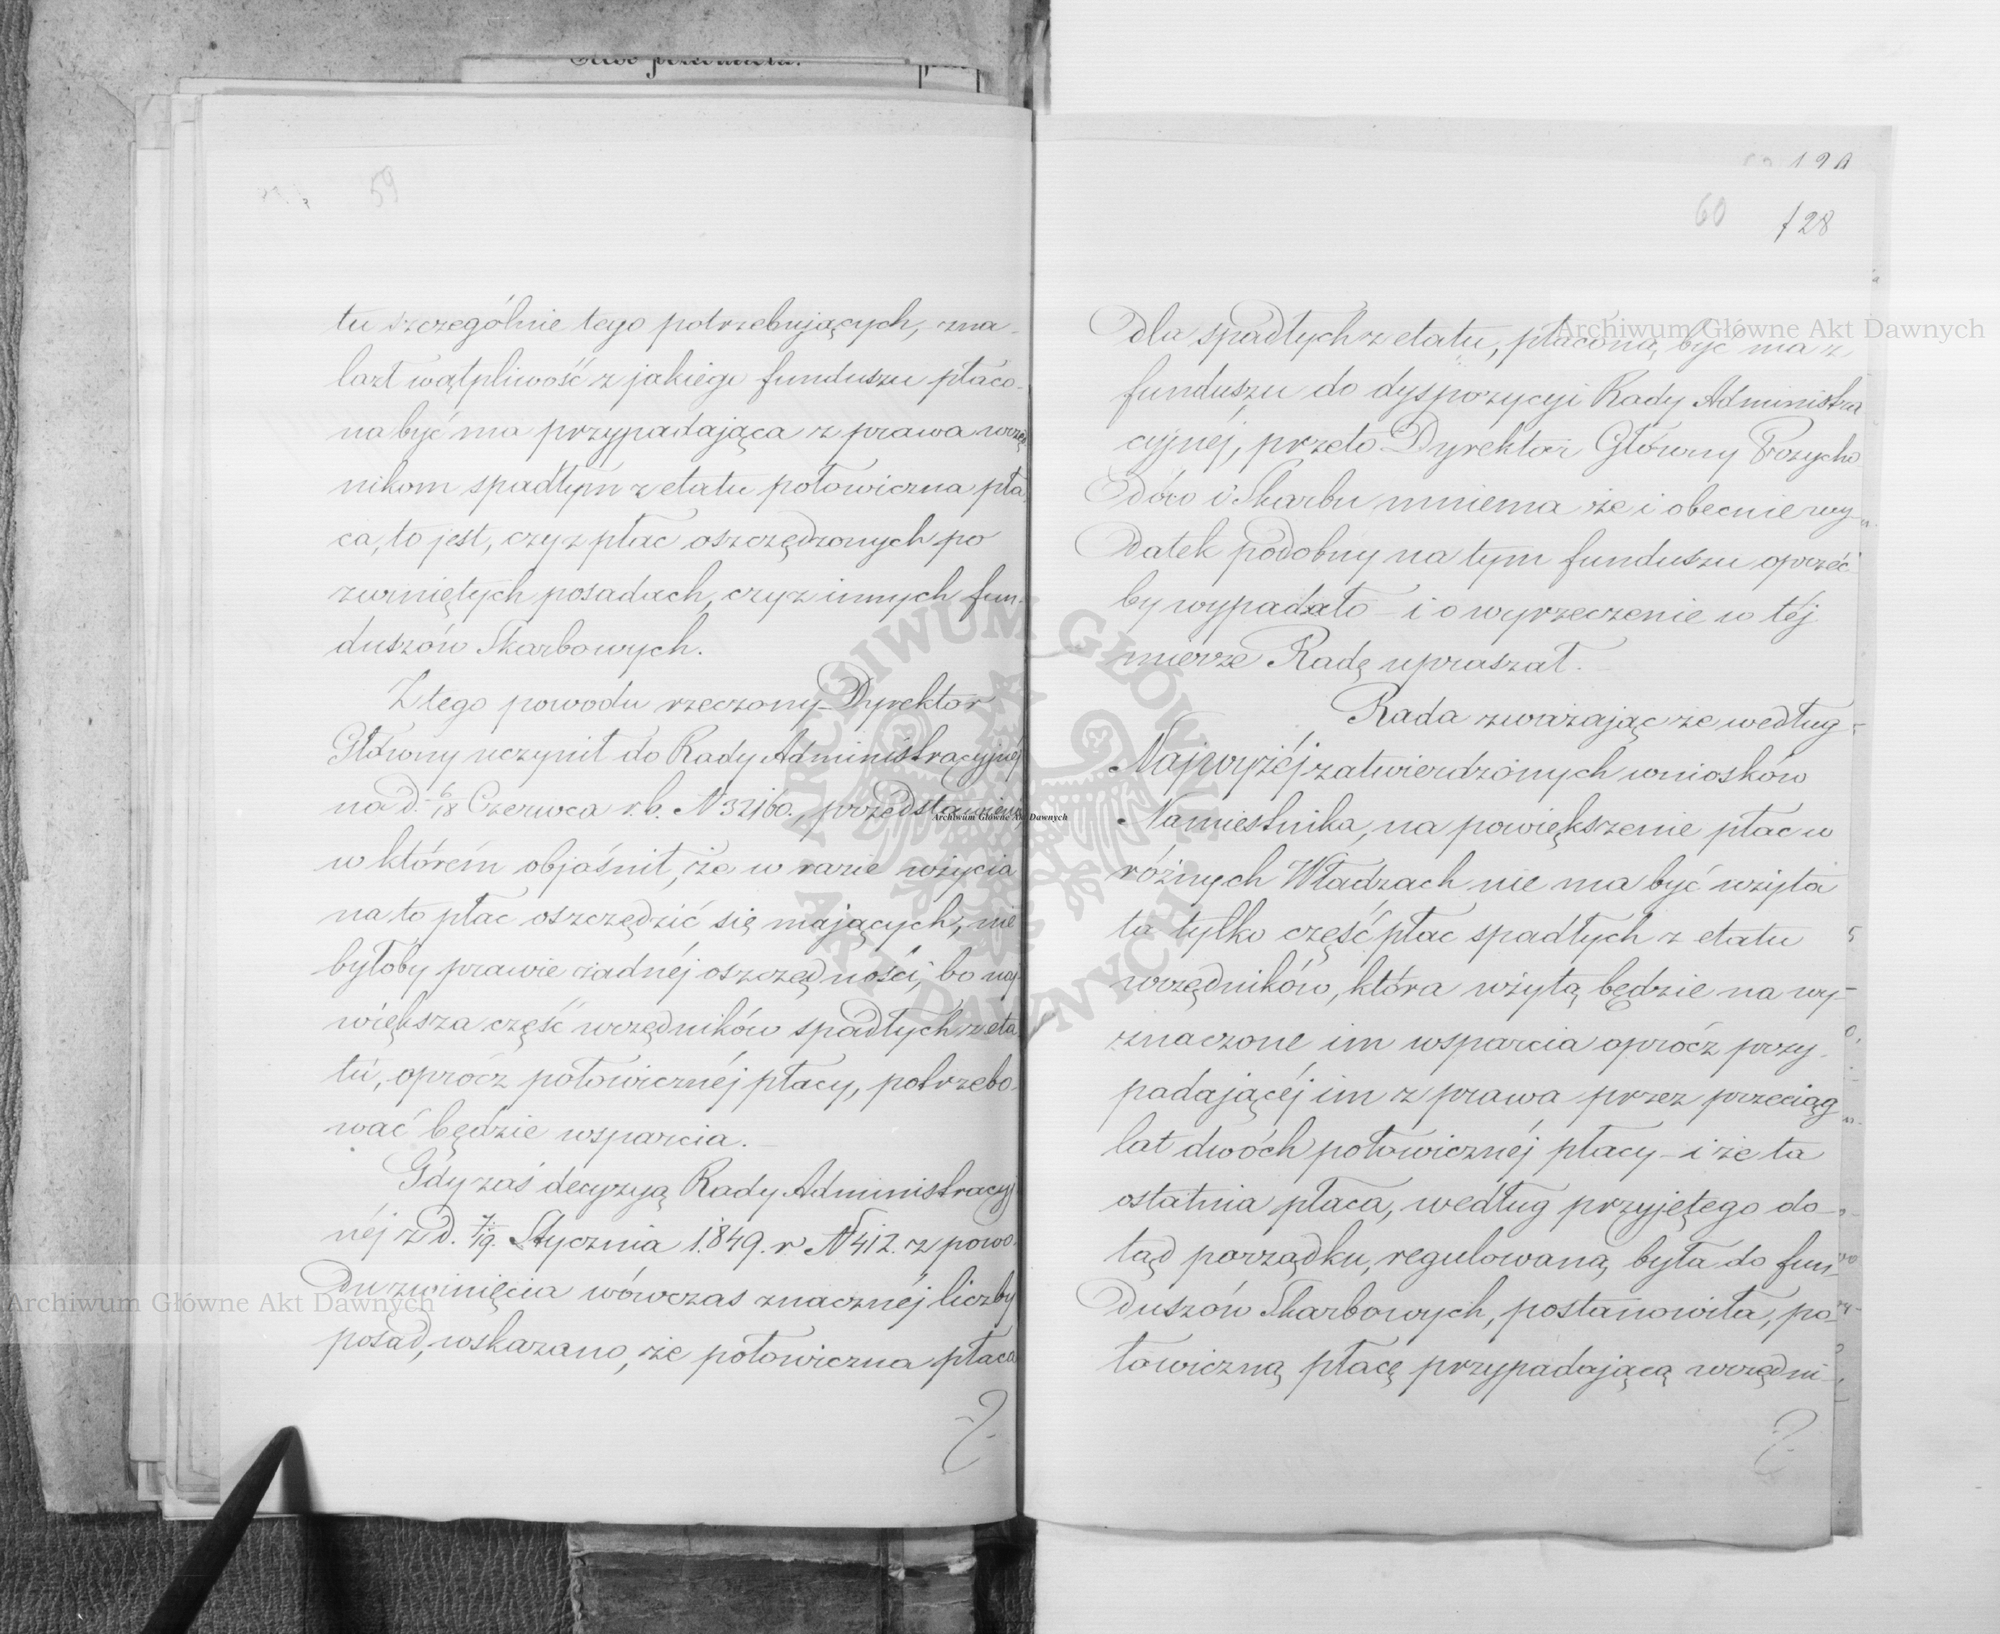 59
tu szczególnie tego potrzebujących, zna-
lazł wątpliwość z jakiego funduszu płaco-
na być ma przypadająca z prawa urzęd
nikom spadłym z etatu połowiczna pła
ca, to jest, czy z płac oszczędzonych po
zwiniętych posadach, czy z innych fun-
duszów Skarbowych.
Z tego powodu rzeczony Dyrektor
Główny uczynił do Rady Administracyjnej
na d. 6/18 Czerwca r.b. N 32160., przedstawienie
w którém objaśnił, że w razie użycia
na to płac oszczędzić się mających, nie
byłoby prawie żadnéj oszczędności, bo naj
większa część urzędników spadłych z eta
tu, oprócz połowicznéj płacy, potrzebo-
wać będzie wsparcia.
Gdy zaś decyzyą Rady Administracyj
néj z d. 7/19. Stycznia 1849. r N 412. z powo-
du zwinięcia wówczas znacznéj liczby
posad, wskazano, że połowiczna płaca
60
128
dla spadłych z etatu, płaconą być ma z
funduszu do dyspozycyi Rady Administra
cyjnéj, przeto Dyrektor Główny Przycho
dów i Skarbu mniema że i obecnie wy-
datek podobny na tym funduszu oprzéć
by wypadało - i o wyrzeczenie w téj
mierze Radę upraszał.
Rada zważając że według
Najwyżéj zatwierdzonych wniosków
Namiestnika, na powiększenie płac w
różnych Władzach nie ma być użyta
ta tylko część płac spadłych z etatu
urzędników, która użytą będzie na wy-
znaczone im wsparcia oprócz przy-
padającéj im z prawa przez przeciąg
lat dwóch połowicznéj płacy - i że ta
ostatnia płaca, według przyjętego do-
tąd porządku, regulowaną była do fun-
duszów Skarbowych, postanowiła, po-
łowiczną płacę przypadającą urzędni-
Archiwum Główne Akt Dawnych
Archiwum Główne Akt Dawnych
Archiwum Główne Akt Dawnych
ARCHIWUM GŁÓWNE AKT DAWNYCH